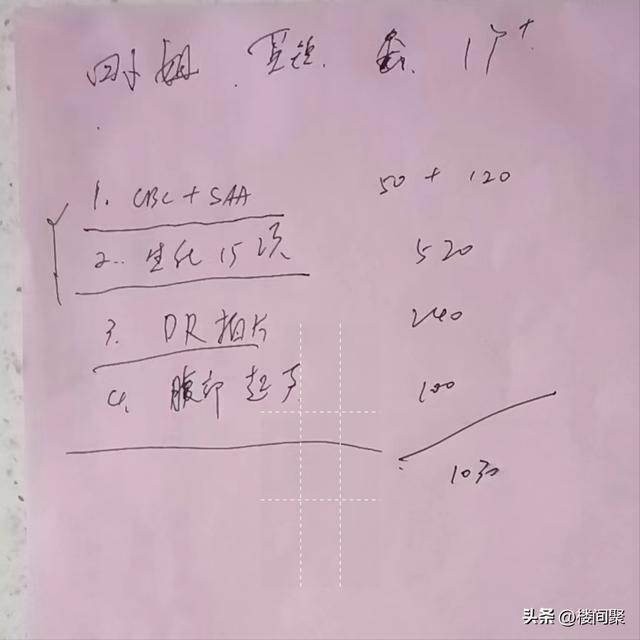 1. CBC + SAA 50 + 120
2. 生化15项 520
3. DR拍片 240
4. 腹部超声 100
1030
头条 @楼间聚